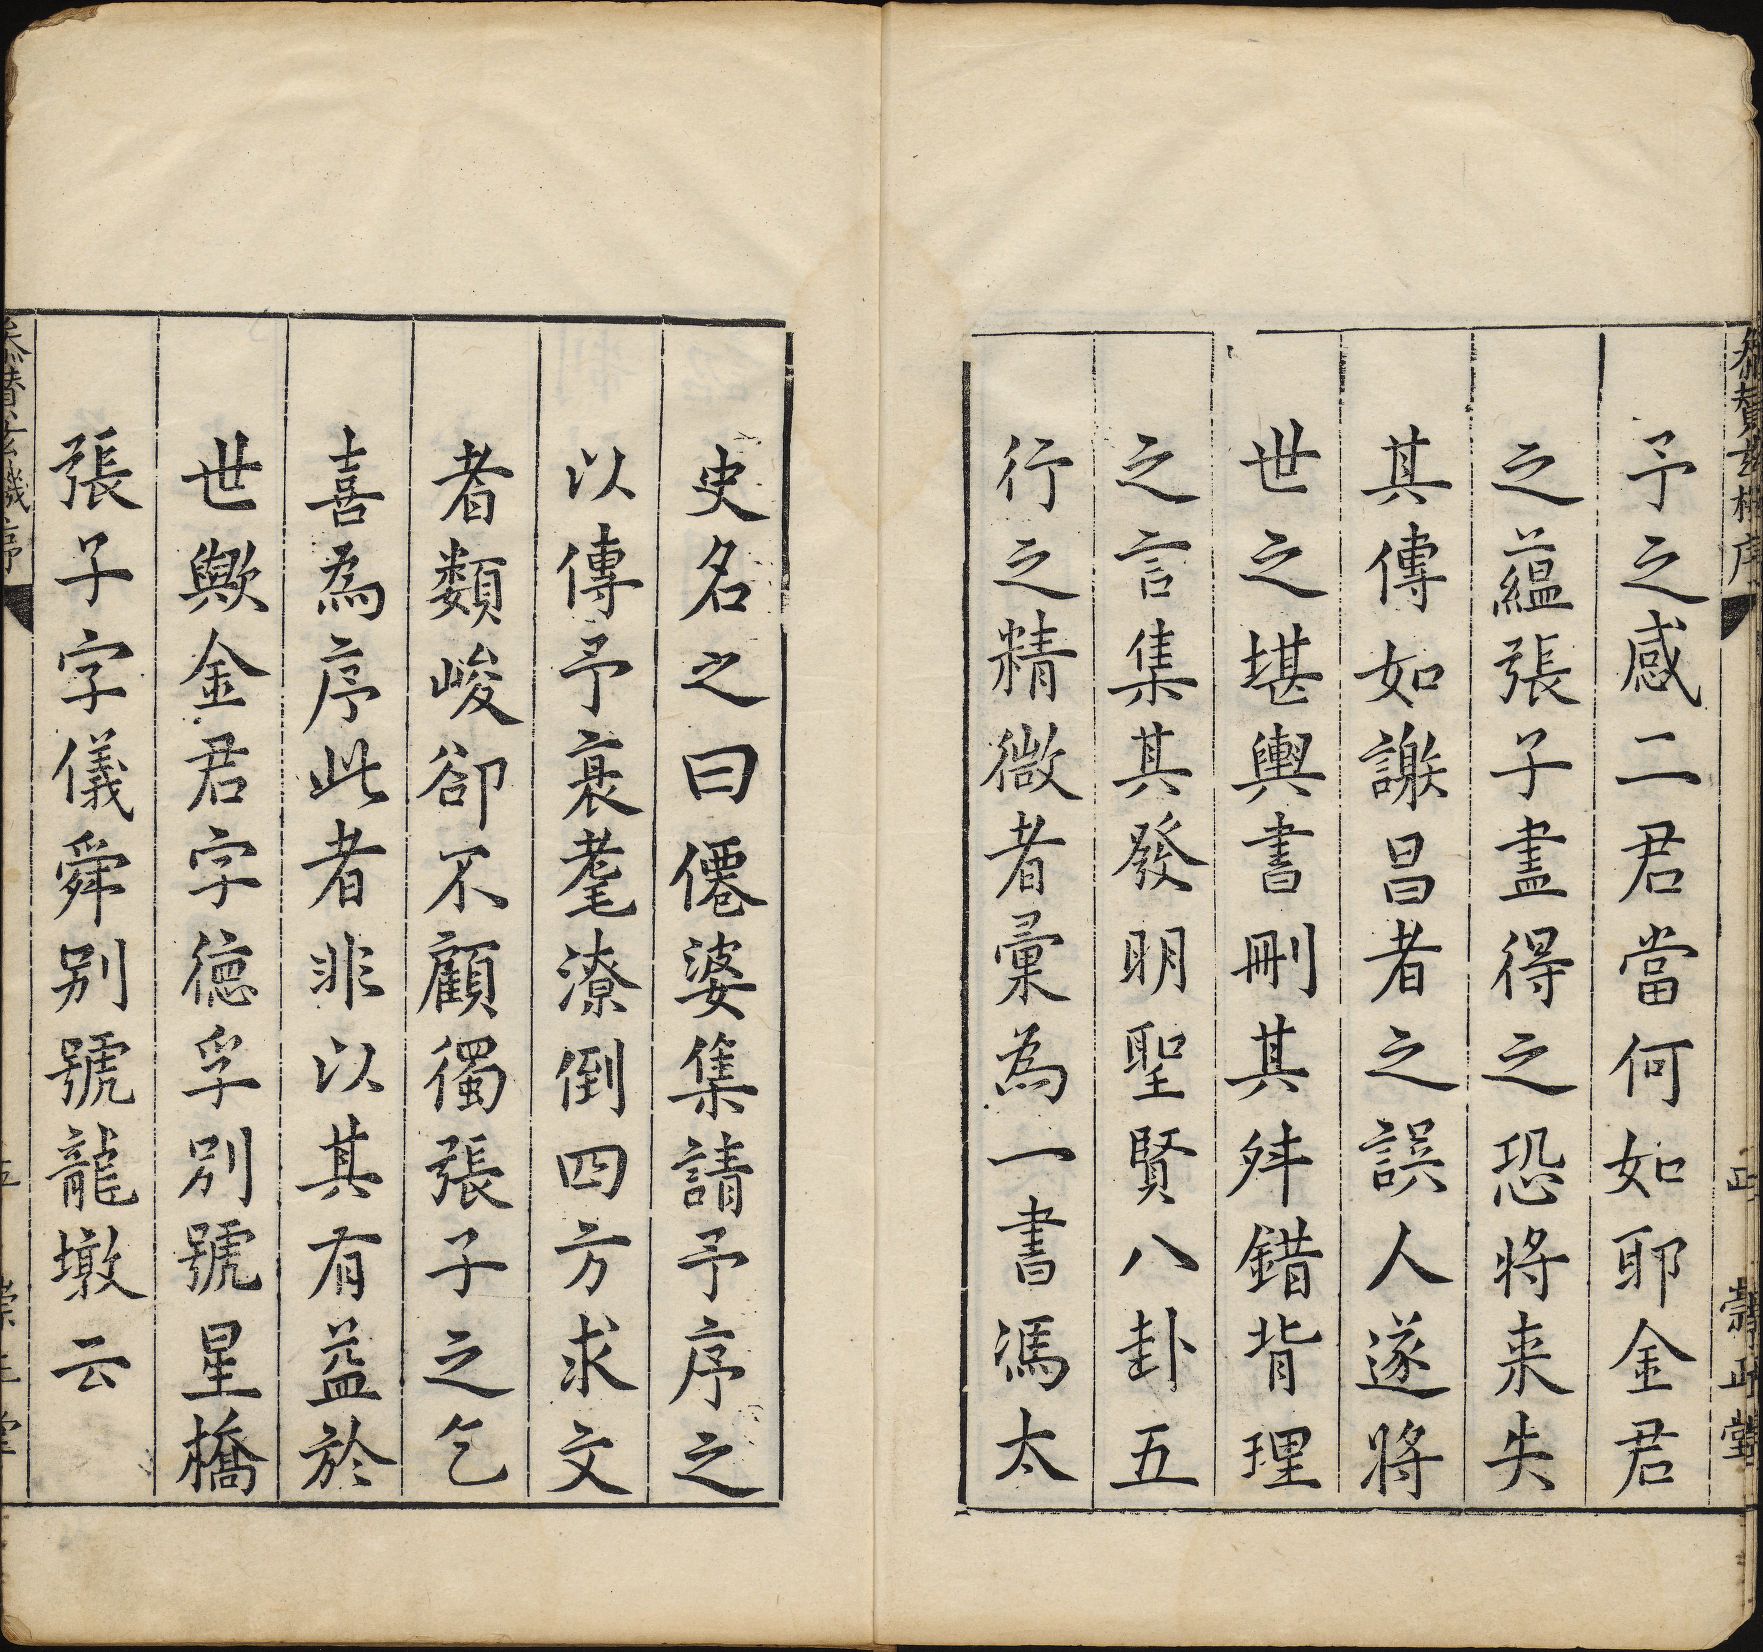 予之感二君當何如耶金君
之蘊張子盡得之恐将来失
其傳如謝昌者之誤人遂將
世之堪輿書刪其舛錯背理
之言集其發明聖賢八卦五
行之精微者彙為一書馮太
史名之曰僊婆集請予序之
以傳予衰耄潦倒四方求文
者類峻卻不顧獨張子之乞
喜為序此者非以其有益於
世歟金君字德孚別號星橋
張子字儀舜別號龍墩云